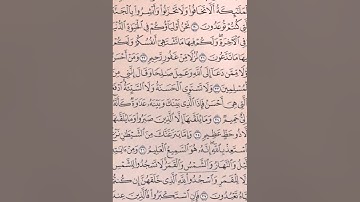 لْمَلَٰٓئِكَةُ أَلَّا تَخَافُوا۟ وَلَا تَحْزَنُوا۟ وَأَبْشِرُوا۟ بِٱلْجَنَّ
تِى كُنتُمْ تُوعَدُونَ ٣٠ نَحْنُ أَوْلِيَآؤُكُمْ فِى ٱلْحَيَوٰةِ ٱلدُّنْيَا
فِى ٱلْءَاخِرَةِ وَلَكُمْ فِيهَا مَا تَشْتَهِىٓ أَنفُسُكُمْ وَلَكُمْ
هَا مَا تَدَّعُونَ ٣١ نُزُلًا مِّنْ غَفُورٍ رَّحِيمٍ ٣٢ وَمَنْ
لًا مِّمَّن دَعَآ إِلَى ٱللَّهِ وَعَمِلَ صَٰلِحًا وَقَالَ إِنَّنِى مِنَ
لْمُسْلِمِينَ ٣٣ وَلَا تَسْتَوِى ٱلْحَسَنَةُ وَلَا ٱلسَّيِّئَةُ ٱدْفَعْ
تِى هِىَ أَحْسَنُ فَإِذَا ٱلَّذِى بَيْنَكَ وَبَيْنَهُۥ عَدَٰوَةٌ كَأَنَّهُۥ
لِىٌّ حَمِيمٌ ٣٤ وَمَا يُلَقَّىٰهَآ إِلَّا ٱلَّذِينَ صَبَرُوا۟ وَمَا يُلَقَّىٰهَآ
لَّا ذُو حَظٍّ عَظِيمٍ ٣٥ وَإِمَّا يَنزَغَنَّكَ مِنَ ٱلشَّيْطَٰنِ نَزْ
ٱسْتَعِذْ بِٱللَّهِ إِنَّهُۥ هُوَ ٱلسَّمِيعُ ٱلْعَلِيمُ ٣٦ وَمِنْ ءَايَٰتِهِ
لَّيْلُ وَٱلنَّهَارُ وَٱلشَّمْسُ وَٱلْقَمَرُ لَا تَسْجُدُوا۟ لِلشَّمْسِ
لَا لِلْقَمَرِ وَٱسْجُدُوا۟ لِلَّهِ ٱلَّذِى خَلَقَهُنَّ إِن كُنتُمْ
يَّاهُ تَعْبُدُونَ ٣٧ فَإِنِ ٱسْتَكْبَرُوا۟ فَٱلَّذِينَ عِندَ